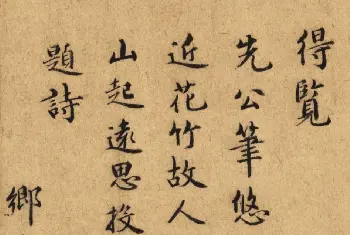 得覽
先公筆悠
近花竹故人
山起遠思投
題詩
鄉